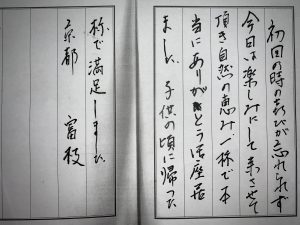 初回の時の喜びが忘れられず
今日は楽しみにして来させて
頂き自然の恵み一杯で本
当にありがとうございま
した 子供の頃に帰った
様で満足しました
京都 富枝